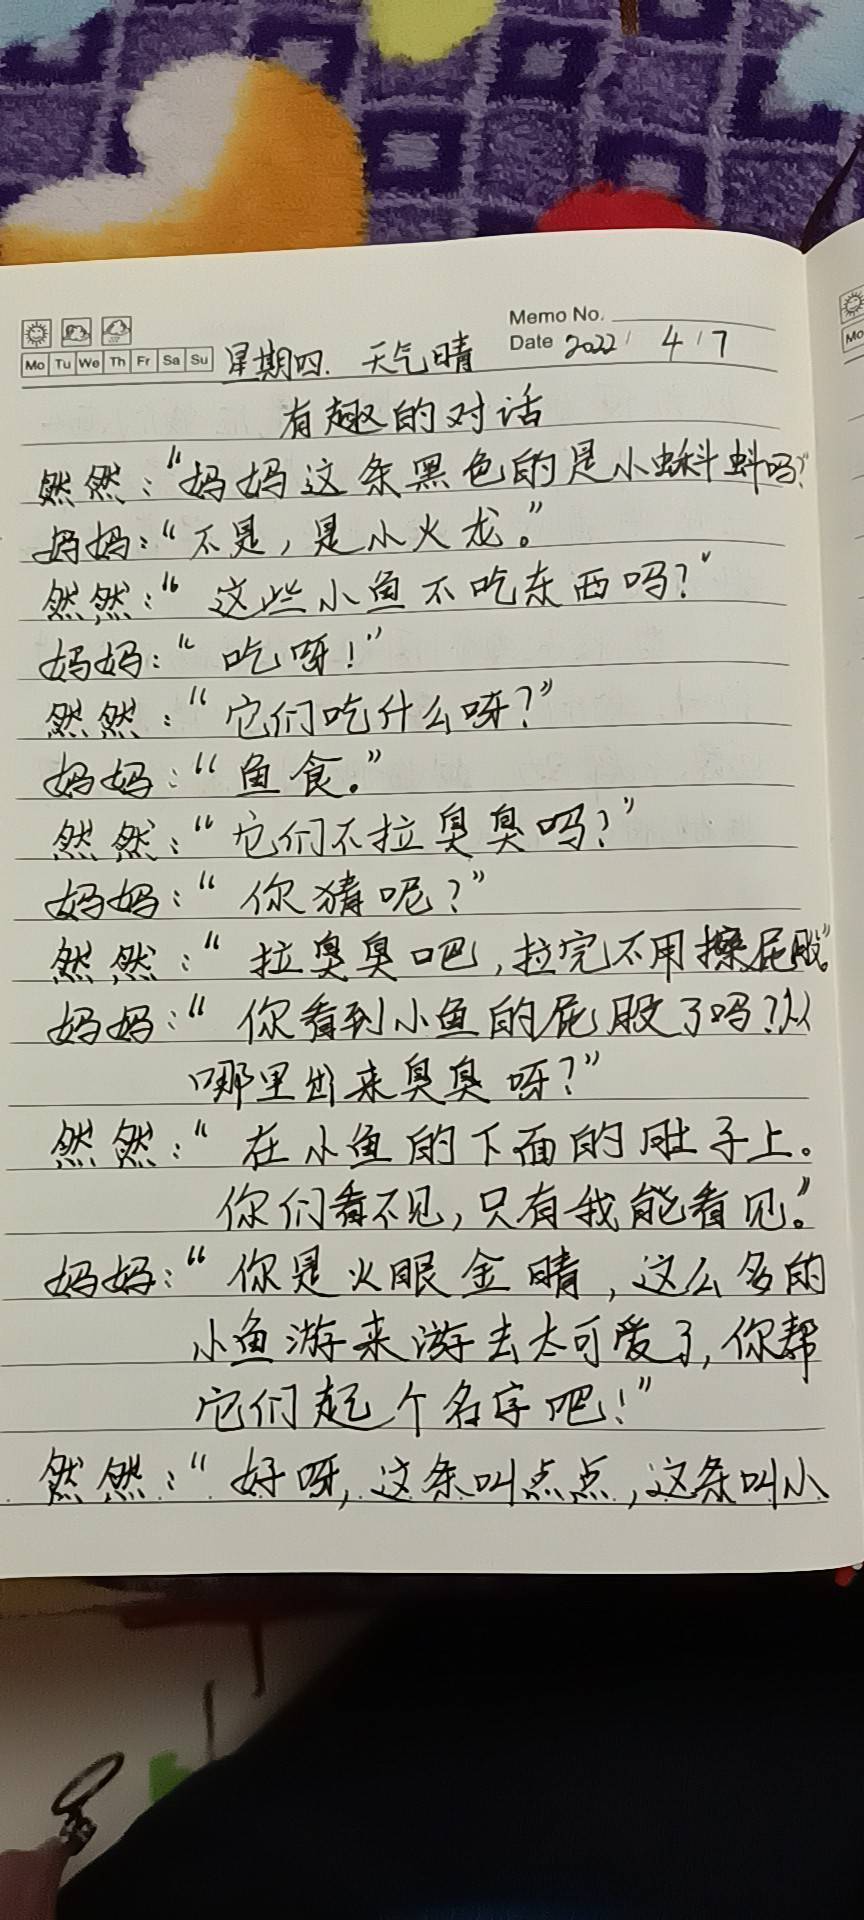 Memo No.
Mo Tu We Th Fr Sa Su 星期四. 天气晴 Date 2022 / 4 / 7
有趣的对话
然然：“妈妈这条黑色的是小蝌蚪吗?”
妈妈：“不是，是小火龙。”
然然：“这些小鱼不吃东西吗？”
妈妈：“吃呀！”
然然：“它们吃什么呀？”
妈妈：“鱼食。”
然然：“它们不拉臭臭吗？”
妈妈：“你猜呢？”
然然：“拉臭臭吧，拉完不用擦屁股。”
妈妈：“你看到小鱼的屁股了吗？从
哪里出来臭臭呀？”
然然：“在小鱼的下面的肚子上。
你们看不见，只有我能看见。”
妈妈：“你是火眼金晴，这么多的
小鱼游来游去太可爱了，你帮
它们起个名字吧！”
然然：“好呀，这条叫点点，这条叫小
Mo